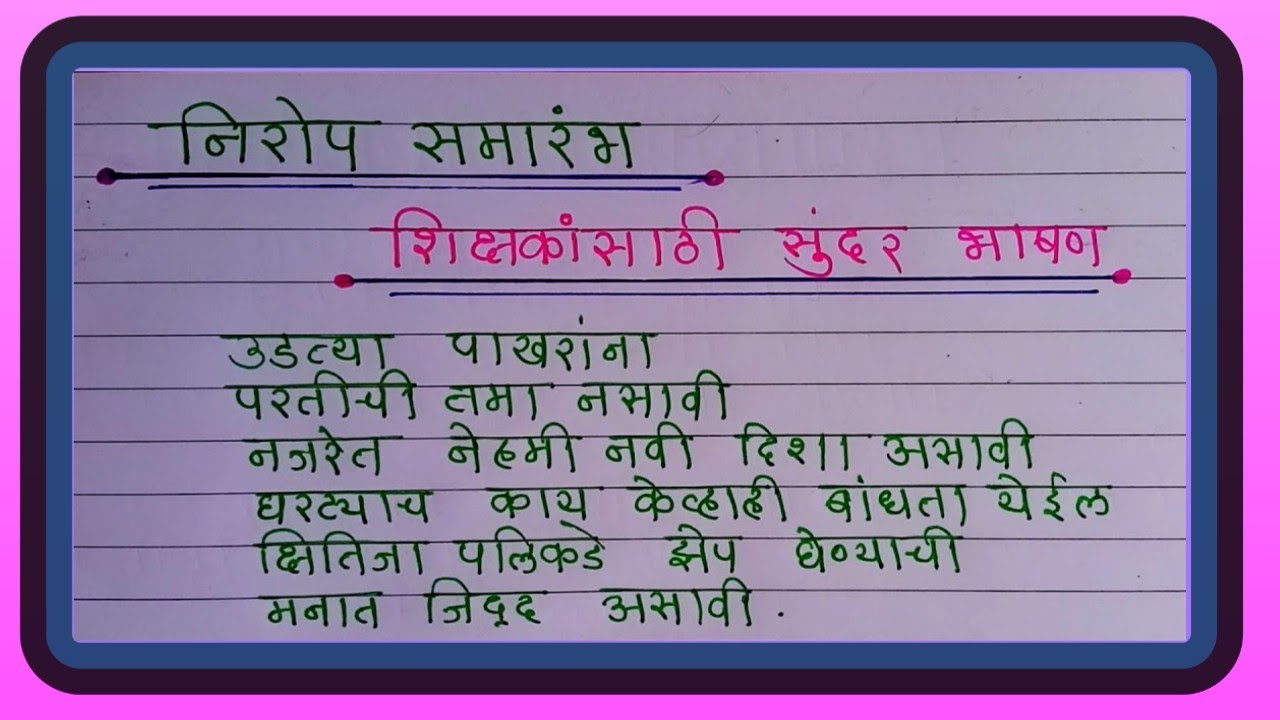 निरोप समारंभ
शिक्षकांसाठी सुंदर भाषण
उडत्या पाखरांना
परतीची तमा नसावी
नजरेत नेहमी नवी दिशा असावी
घरट्याच काय केव्हाही बांधता येईल
क्षितिजा पलिकडे झेप घेण्याची
मनात जिद्द असावी .